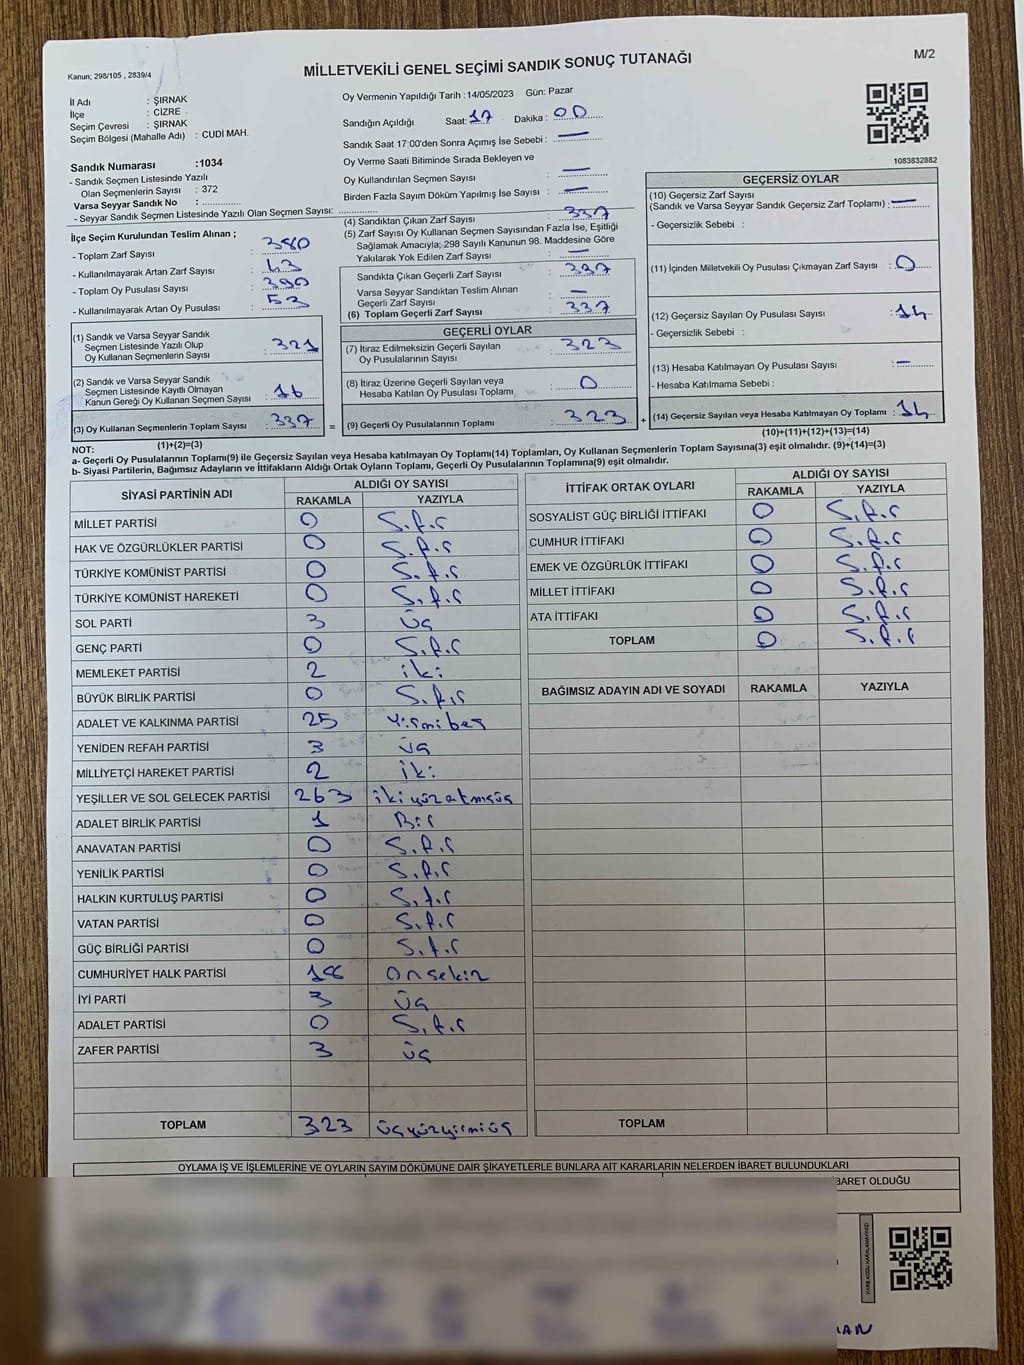 Kanun; 298/105 , 2839/4
MİLLETVEKİLİ GENEL SEÇİMİ SANDIK SONUÇ TUTANAĞI
M/2
İl Adı : ŞIRNAK
İlçe : CİZRE
Seçim Çevresi : ŞIRNAK
Seçim Bölgesi (Mahalle Adı) : CUDİ MAH.
Sandık Numarası :1034
- Sandık Seçmen Listesinde Yazılı
Olan Seçmenlerin Sayısı : 372
Varsa Seyyar Sandık No :
- Seyyar Sandık Seçmen Listesinde Yazılı Olan Seçmen Sayısı:
Oy Vermenin Yapıldığı Tarih :14/05/2023 Gün: Pazar
Sandığın Açıldığı Saat: 17 Dakika : 00
Sandık Saat 17:00'den Sonra Açımış İse Sebebi : —
Oy Verme Saati Bitiminde Sırada Bekleyen ve
Oy Kullandırılan Seçmen Sayısı : —
Birden Fazla Sayım Döküm Yapılmış İse Sayısı : —
1083832882
İlçe Seçim Kurulundan Teslim Alınan ;
- Toplam Zarf Sayısı : 380
- Kullanılmayarak Artan Zarf Sayısı : 43
- Toplam Oy Pusulası Sayısı : 390
- Kullanılmayarak Artan Oy Pusulası : 53
(1) Sandık ve Varsa Seyyar Sandık
Seçmen Listesinde Yazılı Olup
Oy Kullanan Seçmenlerin Sayısı : 321
(2) Sandık ve Varsa Seyyar Sandık
Seçmen Listesinde Kayıtlı Olmayan
Kanun Gereği Oy Kullanan Seçmen Sayısı : 16
(3) Oy Kullanan Seçmenlerin Toplam Sayısı : 337
(1)+(2)=(3)
(4) Sandıktan Çıkan Zarf Sayısı : 337
(5) Zarf Sayısı Oy Kullanan Seçmen Sayısından Fazla İse, Eşitliği
Sağlamak Amacıyla, 298 Sayılı Kanunun 98. Maddesine Göre
Yakılarak Yok Edilen Zarf Sayısı : —
Sandıkta Çıkan Geçerli Zarf Sayısı : 337
Varsa Seyyar Sandıktan Teslim Alınan
Geçerli Zarf Sayısı : —
(6) Toplam Geçerli Zarf Sayısı : 337
GEÇERLİ OYLAR
(7) İtiraz Edilmeksizin Geçerli Sayılan
Oy Pusulalarının Sayısı : 323
(8) İtiraz Üzerine Geçerli Sayılan veya
Hesaba Katılan Oy Pusulası Toplamı : 0
= (9) Geçerli Oy Pusulalarının Toplamı : 323
GEÇERSİZ OYLAR
(10) Geçersiz Zarf Sayısı
(Sandık ve Varsa Seyyar Sandık Geçersiz Zarf Toplamı) : —
- Geçersizlik Sebebi :
(11) İçinden Milletvekili Oy Pusulası Çıkmayan Zarf Sayısı : 0
(12) Geçersiz Sayılan Oy Pusulası Sayısı : 14
- Geçersizlik Sebebi :
(13) Hesaba Katılmayan Oy Pusulası Sayısı : —
- Hesaba Katılmama Sebebi :
+ (14) Geçersiz Sayılan veya Hesaba Katılmayan Oy Toplamı : 14
(10)+(11)+(12)+(13)=(14)
NOT:
a- Geçerli Oy Pusulalarının Toplamı(9) ile Geçersiz Sayılan veya Hesaba katılmayan Oy Toplamı(14) Toplamları, Oy Kullanan Seçmenlerin Toplam Sayısına(3) eşit olmalıdır. (9)+(14)=(3)
b- Siyasi Partilerin, Bağımsız Adayların ve İttifakların Aldığı Ortak Oyların Toplamı, Geçerli Oy Pusulalarının Toplamına(9) eşit olmalıdır.
SİYASİ PARTİNİN ADI ALDIĞI OY SAYISI
RAKAMLA YAZIYLA
MİLLET PARTİSİ 0 Sıfır
HAK VE ÖZGÜRLÜKLER PARTİSİ 0 Sıfır
TÜRKİYE KOMÜNİST PARTİSİ 0 Sıfır
TÜRKİYE KOMÜNİST HAREKETİ 0 Sıfır
SOL PARTİ 3 üç
GENÇ PARTİ 0 Sıfır
MEMLEKET PARTİSİ 2 iki
BÜYÜK BİRLİK PARTİSİ 0 Sıfır
ADALET VE KALKINMA PARTİSİ 25 Yirmibeş
YENİDEN REFAH PARTİSİ 3 üç
MİLLİYETÇİ HAREKET PARTİSİ 2 iki
YEŞİLLER VE SOL GELECEK PARTİSİ 263 ikiyüzatmışüç
ADALET BİRLİK PARTİSİ 1 Bir
ANAVATAN PARTİSİ 0 Sıfır
YENİLİK PARTİSİ 0 Sıfır
HALKIN KURTULUŞ PARTİSİ 0 Sıfır
VATAN PARTİSİ 0 Sıfır
GÜÇ BİRLİĞİ PARTİSİ 0 Sıfır
CUMHURİYET HALK PARTİSİ 18 Onsekiz
İYİ PARTİ 3 üç
ADALET PARTİSİ 0 Sıfır
ZAFER PARTİSİ 3 üç
TOPLAM 323 üçyüzyirmiüç
İTTİFAK ORTAK OYLARI ALDIĞI OY SAYISI
RAKAMLA YAZIYLA
SOSYALİST GÜÇ BİRLİĞİ İTTİFAKI 0 Sıfır
CUMHUR İTTİFAKI 0 Sıfır
EMEK VE ÖZGÜRLÜK İTTİFAKI 0 Sıfır
MİLLET İTTİFAKI 0 Sıfır
ATA İTTİFAKI 0 Sıfır
TOPLAM 0 Sıfır
BAĞIMSIZ ADAYIN ADI VE SOYADI RAKAMLA YAZIYLA
TOPLAM
OYLAMA İŞ VE İŞLEMLERİNE VE OYLARIN SAYIM DÖKÜMÜNE DAİR ŞİKAYETLERLE BUNLARA AİT KARARLARIN NELERDEN İBARET BULUNDUKLARI
BARET OLDUĞU